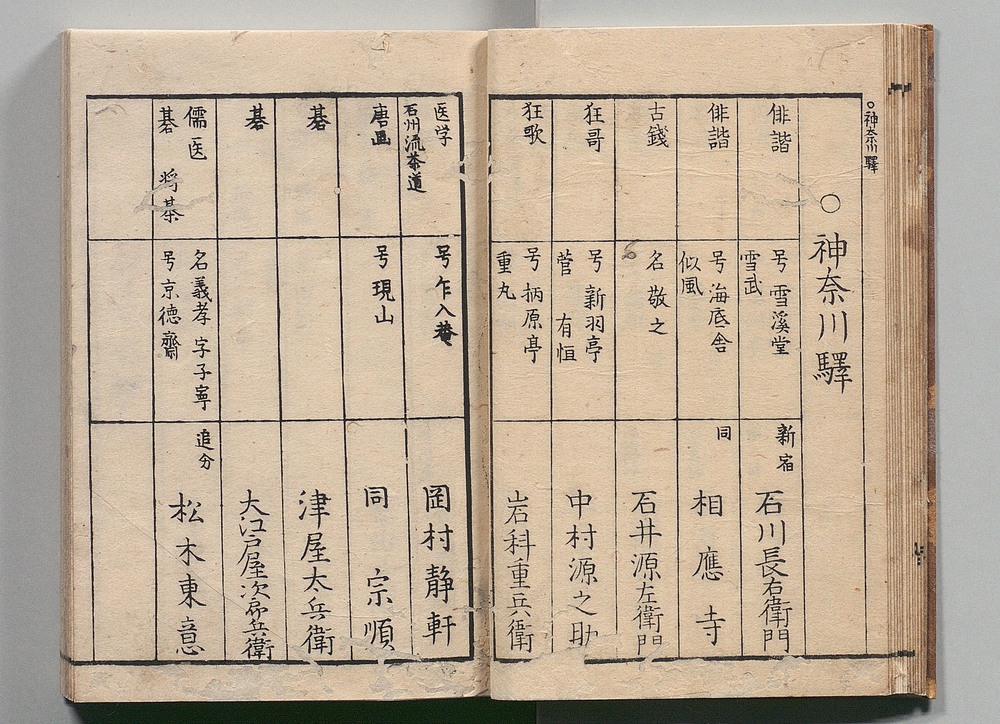 ○神奈川驛
○神奈川驛
俳諧
号 雪溪堂
雪武
新宿
石川長右衛門
俳諧
号 海底舎
似風
同
相應寺
古錢
名 敬之
石井源左衛門
狂哥
号 新羽亭
菅 有恒
中村源之助
狂歌
号 柄原亭
重丸
岩科重兵衛
医学
石州流茶道
号 乍入菴
岡村静軒
唐画
号 現山
同 宗順
碁
津屋太兵衛
碁
大江戸屋次郎兵衛
儒医
碁 将棊
名義孝 字子寧
号京徳齋
追分
松木東意